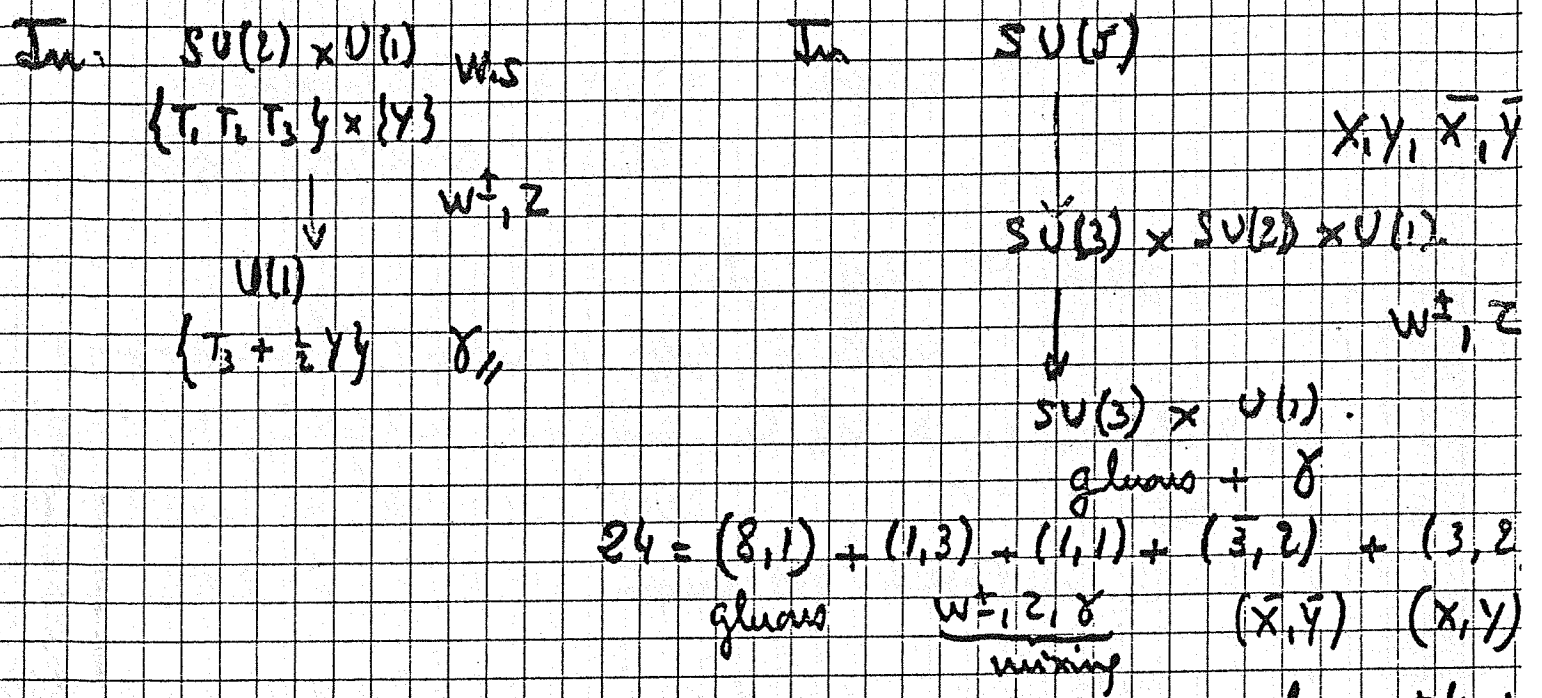 In: SU(2) x U(1) W.S
{T₁ T₂ T₃} x {Y}
↓ W±, Z
U(1)
{T₃ + ½ Y} γ
In SU(5)
X, Y, X̄, Ȳ
SU(3) x SU(2) x U(1).
W±, Z
SU(3) x U(1).
gluons + γ
24 = (8,1) + (1,3) + (1,1) + (3̄,2) + (3,2
gluons W±, Z, γ (X̄,Ȳ) (X,Y)
mixing